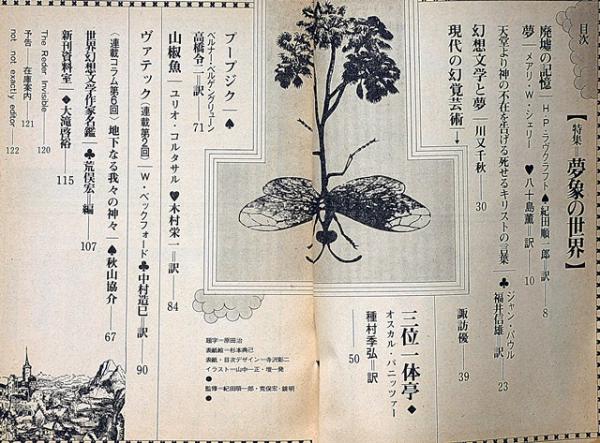 目次
【特集＝夢象の世界】
廃墟の記憶│H・P・ラヴクラフト♠紀田順一郎 訳│8
夢│メアリ・W・シェリー♥八十島薫＝訳│10
天堂より神の不在を告げる死せるキリストの言葉│♣ジャン・パウル
福井信雄 訳│23
幻想文学と夢│川又千秋│30
現代の幻覚芸術→
諏訪優│39
三位一体亭◆
オスカル・パニッツァー
種村季弘＝訳
50
プープジク│♠
ベルナー・ベルゲングリューン
高橋令二＝訳│71
山椒魚│ユリオ・コルタサル♥木村栄一＝訳│84
ヴァテック〈連載第2回〉│W・ベックフォード♣中村造巳 訳│90
〈連載コラム第6回〉地下なる我々の神々│♠秋山協介│67
世界幻想文学作家名鑑│♣荒俣宏＝編│107
新刊資料室│◆大滝啓裕│115
The Reder Invisible│120
予告│在庫案内│121
not not exactly editor│122
題字―原田治
表紙絵―杉本典己
表紙・目次デザイン―寺沢彰二
イラスト―山中一正・増一発
●
監修―紀田順一郎・荒俣宏・鏡明
●